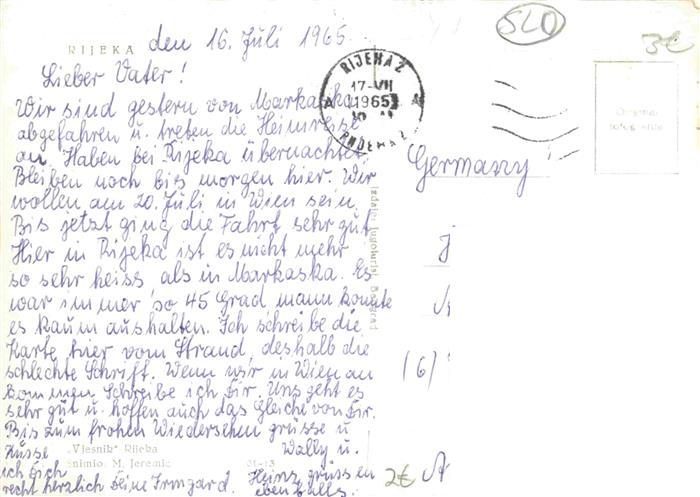 SLO
3€
RIJEKA den 16. Juli 1965.
Lieber Vater!
Wir sind gestern von Markaska
abgefahren u. treten die Heimreise
an. Haben bei Rijeka übernachtet.
Bleiben noch bis morgen hier. Wir
wollen am 20. Juli in Wien sein.
Bis jetzt ging die Fahrt sehr gut.
Hier in Rijeka ist es nicht mehr
so sehr heiss als in Markaska. Es
war immer so 45 Grad mann konnte
es kaum aushalten. Ich schreibe die
Karte hier vom Strand, deshalb die
schlechte Schrift. Wenn wir in Wien an
kommen schreibe ich Dir. Uns geht es
sehr gut u. hoffen auch das Gleiche von Dir.
Bis zum frohen Wiedersehen grüsse u.
küsse
ich Dich
recht herzlich Deine Irmgard.
Wally u.
Heinz grüssen
ebenfalls.
"Vjesnik" Rijeka
Snimio: M. Jeremić
01-13
Izdaje: Jugoturist, Beograd
RIJEKA 2
17-VII
1965
A
Germany
(6)
2€